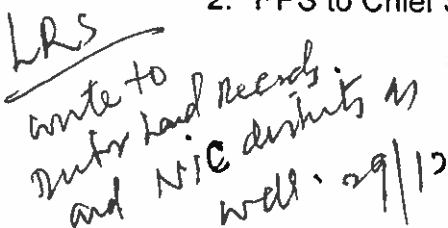 2. PPS to Chief S
LRS
write to
Land Records.
and NIC districts as
well. 29/12